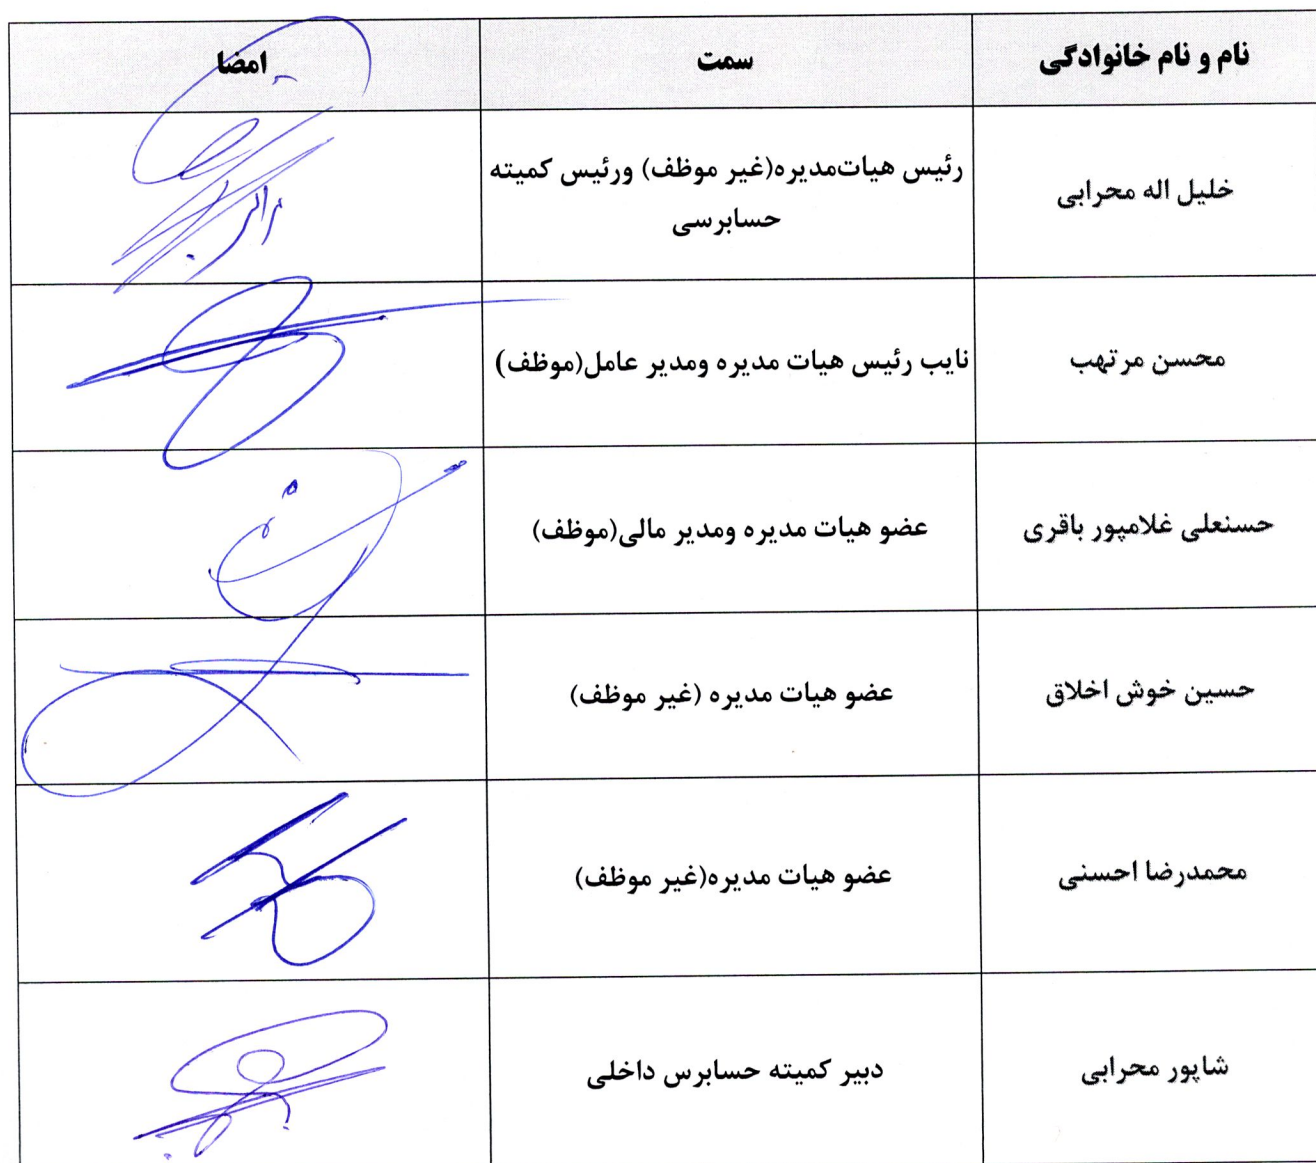 نام و نام خانوادگی
سمت
امضا
خلیل اله محرابی
رئیس هیات‌مدیره(غیر موظف) ورئیس کمیته
حسابرسی
محسن مرتهب
نایب رئیس هیات مدیره ومدیر عامل(موظف)
حسنعلی غلامپور باقری
عضو هیات مدیره ومدیر مالی(موظف)
حسین خوش اخلاق
عضو هیات مدیره (غیر موظف)
محمدرضا احسنی
عضو هیات مدیره(غیر موظف)
شاپور محرابی
دبیر کمیته حسابرس داخلی